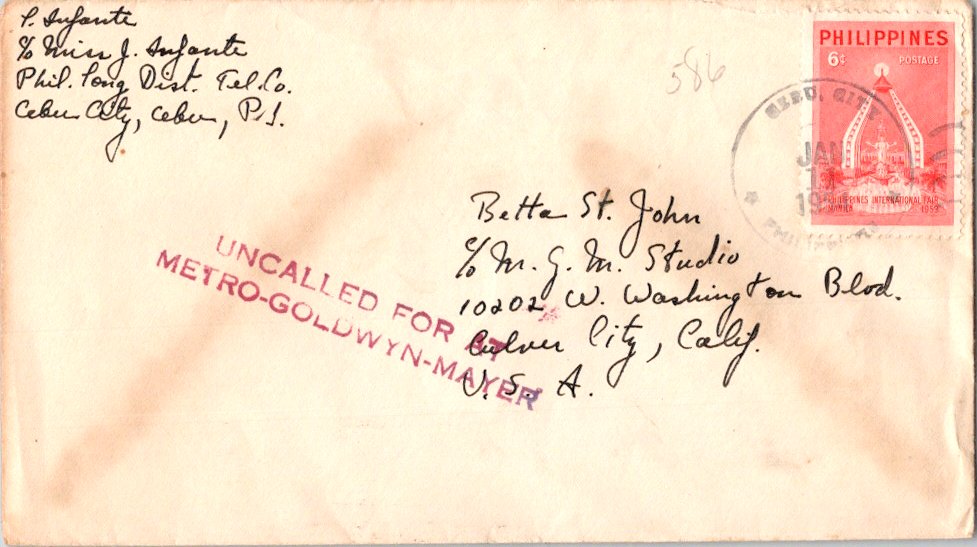 P. Infante
c/o Miss J. Infante
Phil. Long Dist. Tel. Co.
Cebu City, Cebu, P.I.
586
PHILIPPINES
6¢ POSTAGE
CEBU, CITY
JAN
PHILIPPINES
PHILIPPINES INTERNATIONAL FAIR
MANILA 1953
Betta St. John
c/o M. G. M. Studio
10202 W. Washington Blvd.
Culver City, Calif.
U. S. A.
UNCALLED FOR AT
METRO-GOLDWYN-MAYER